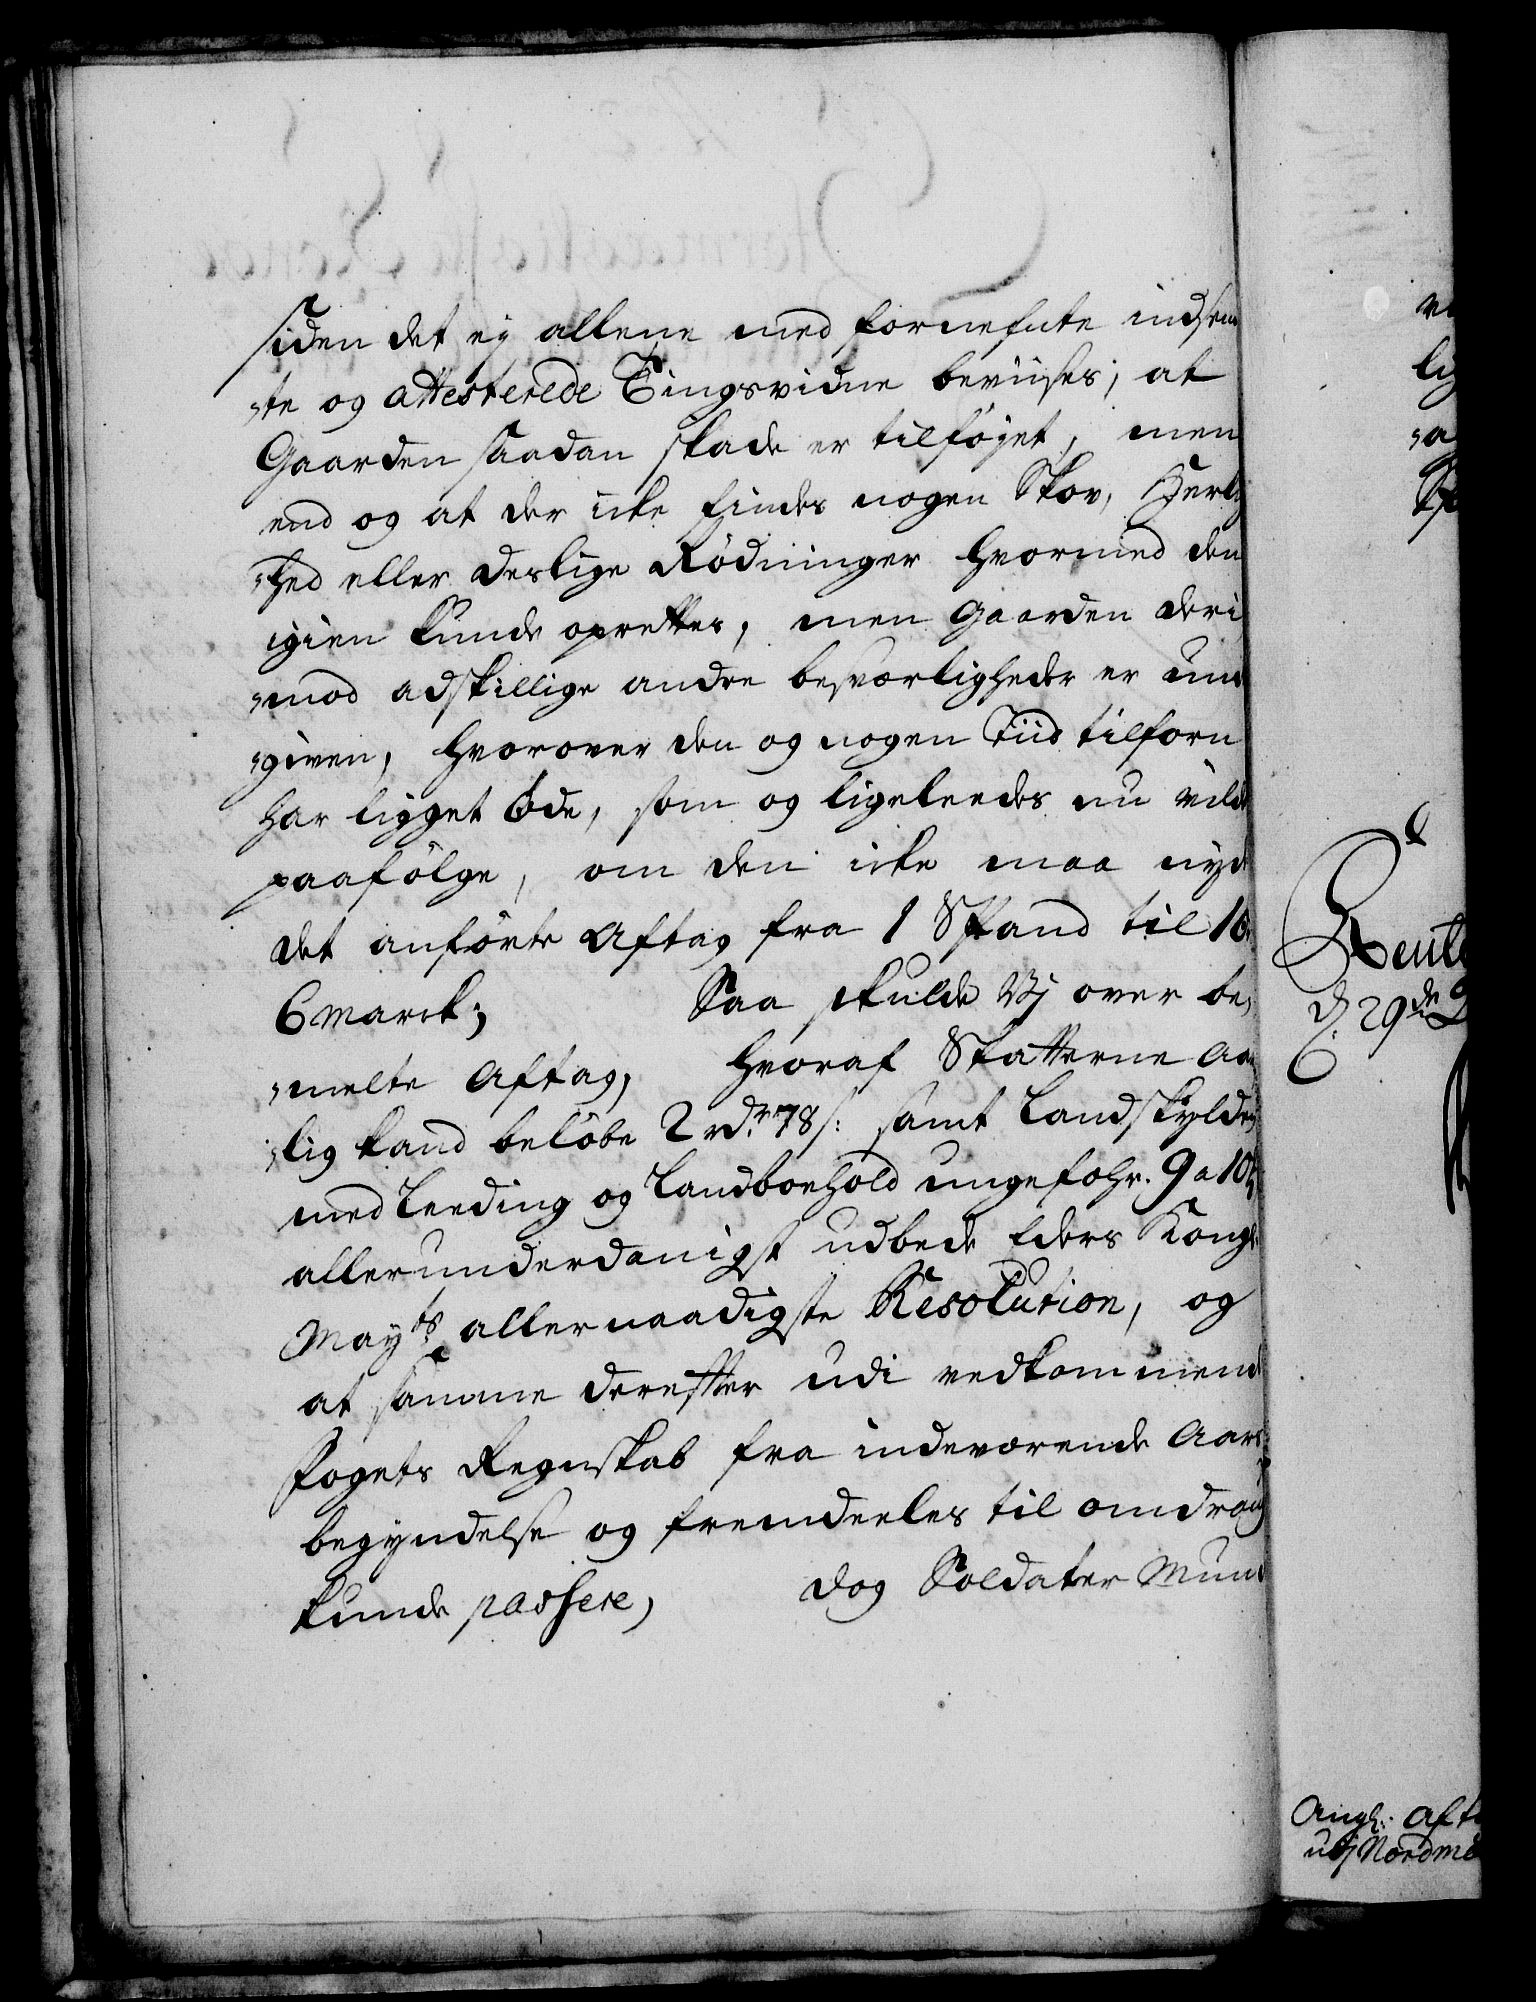 siden det ej allene med fornefnte indsen
„te og attesterede Tingsvidne beviises, at
Gaarden saadan skade er tilføyet, men
end og at der icke findes nogen Skov, Herlig
„hed eller deslige Rødninger hvormed den
igien kunde oprettes, men Gaarden deri
„mod adskillige andre besværligheder er und
„given, hvorover den og nogen Tiid tilforn
har ligget öde, som og ligeleedes nu vilde
paafølge, om den icke maa nyde
det anførte Aftag fra 1 Spand til 1
6 marck; Saa skulde Vj over be„
„melte Aftag, hvoraf Skatterne aar
„lig kand beløbe 2 rdr 78 s: samt Landskylden
med Leeding og Landboehold ungefehr 9 a 10
allerunderdanigst udbede Eders Kongl:
Mayts allernaadigste Resolution, og
at samme derefter udi vedkommende
Fogets Regnskab fra indeværende Aars
begyndelse og fremdeeles til omdrag
kunde passere, dog Soldater Mund
Rente
d. 29de
Angl: Aft
udj Nordmø